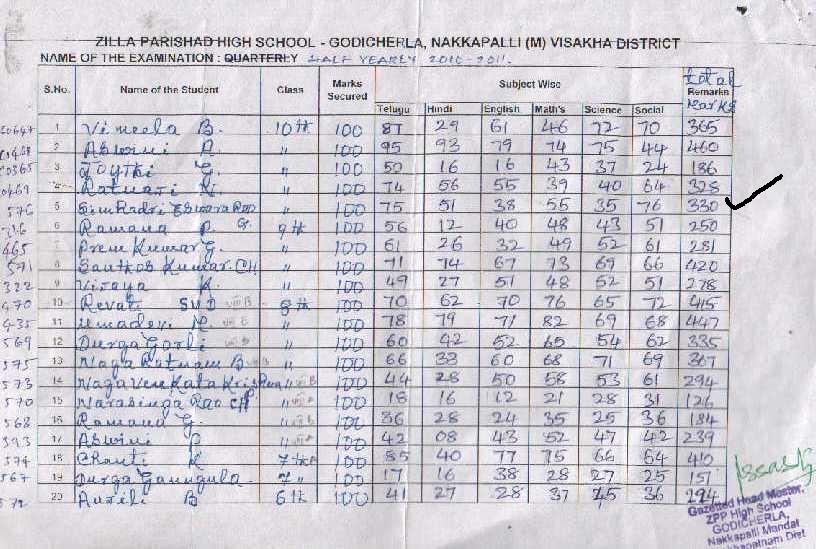 ZILLA PARISHAD HIGH SCHOOL - GODICHERLA, NAKKAPALLI (M) VISAKHA DISTRICT
NAME OF THE EXAMINATION : QUARTERLY HALF YEARLY 2010-2011.
S.No. Name of the Student Class Marks Secured Subject Wise total Remarks Marks
Telugu Hindi English Math's Science Social
1 Vimeela B. 10th 100 87 29 61 46 72 70 365
2 Aswini P. " 100 95 93 79 74 75 44 460
365 3 Joythi G. " 100 50 16 16 43 37 24 186
469 4 Ratnari K. " 100 74 56 55 39 40 64 328
576 5 Simhadri Eswara Rao " 100 75 51 38 55 35 76 330
6 Ramana P. G. 9th 100 56 12 40 48 43 51 250
465 7 Prem Kumar G. " 100 61 26 32 49 52 61 281
571 8 Santhos Kumar.CH " 100 71 74 67 73 69 66 420
322 9 Vijaya K. " 100 49 27 51 48 52 51 278
470 10 Revati SVD VIII B 8th 100 70 62 70 76 65 72 415
435 11 Umadevi M. VIII B " 100 78 79 71 82 69 68 447
569 12 Durga Gorli VIII B " 100 60 42 52 65 54 62 335
575 13 Naga Ratnam B VIII B " 100 66 33 60 68 71 69 367
573 14 Naga Venkata Krishna " VIII B 100 44 28 50 58 53 61 294
570 15 Narasinga Rao CH " VIII A 100 18 16 12 21 28 31 126
568 16 Ramana G. " VIII A 100 36 28 24 35 25 36 184
393 17 Aswini P " VIII A 100 42 08 43 52 47 42 239
574 18 Chanti K 7th A 100 85 40 77 75 66 64 410
567 19 Durga Gannugula 7 " 100 17 16 38 28 27 25 151
572 20 B 6th 100 41 27 28 37 25 36 294
Gazetted Head Master,
ZPP High School
GODICHERLA,
Nakkapalli Mandal
khapatnam Dist